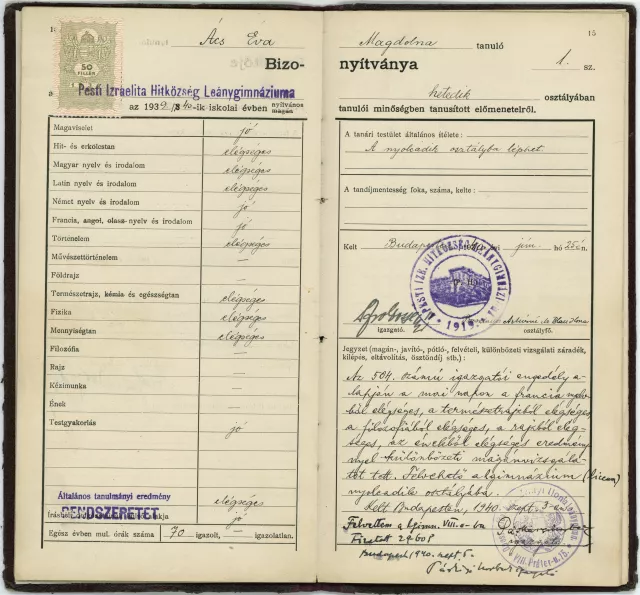 Ács Éva
Bizo-
50
FILLÉR
Pesti Izraelita Hitközség Leánygimnáziuma
az 1939/1940-ik iskolai évben nyilvános
magán
Magaviselet jó
Hit- és erkölcstan elégséges
Magyar nyelv és irodalom elégséges
Latin nyelv és irodalom elégséges
Német nyelv és irodalom jó
Francia, angol, olasz nyelv és irodalom jó
Történelem elégséges
Művészettörténelem —
Földrajz —
Természetrajz, kémia és egészségtan elégséges
Fizika elégséges
Mennyiségtan elégséges
Filozófia —
Rajz —
Kézimunka —
Ének —
Testgyakorlás jó
Általános tanulmányi eredmény elégséges
RENDSZERETET
alakja jó
Egész évben mul. órák száma 70 igazolt, — igazolatlan.
15
Magdolna tanuló
nyítványa 1. sz.
hetedik osztályában
tanulói minőségben tanusított előmenetelről.
A tanári testület általános ítélete:
A nyolcadik osztályba léphet.
A tandíjmentesség foka, száma, kelte:
Kelt Budapest 1940. évi jún. hó 25én.
PESTI IZR. HITKÖZSÉG LEÁNYGIMNÁZIUMA
1919
igazgató. osztályfő.
Jegyzet (magán-, javító-, pótló-, felvételi, különbözeti vizsgálati záradék,
kilépés, eltávolítás, ösztöndíj stb.):
Az 504. számú igazgatói engedély a-
lapján a mai napon a francia nyelv-
ből elégséges, a természetrajzból elégséges,
a filozófiából elégséges, a rajzból elég-
séges, az énekből elégséges eredmény-
nyel különbözeti magánvizsgála-
tot tett. Felvehető a gimnázium (liceum)
nyolcadik osztályába.
Kelt Budapesten, 1940. szept. 3-án
Felvettem a Lgimn. VIII. o-ba
Fizetett 29.60 P
igazgató
Budapest, 1940. szept. 5.
VIII. Práter-u. 15.